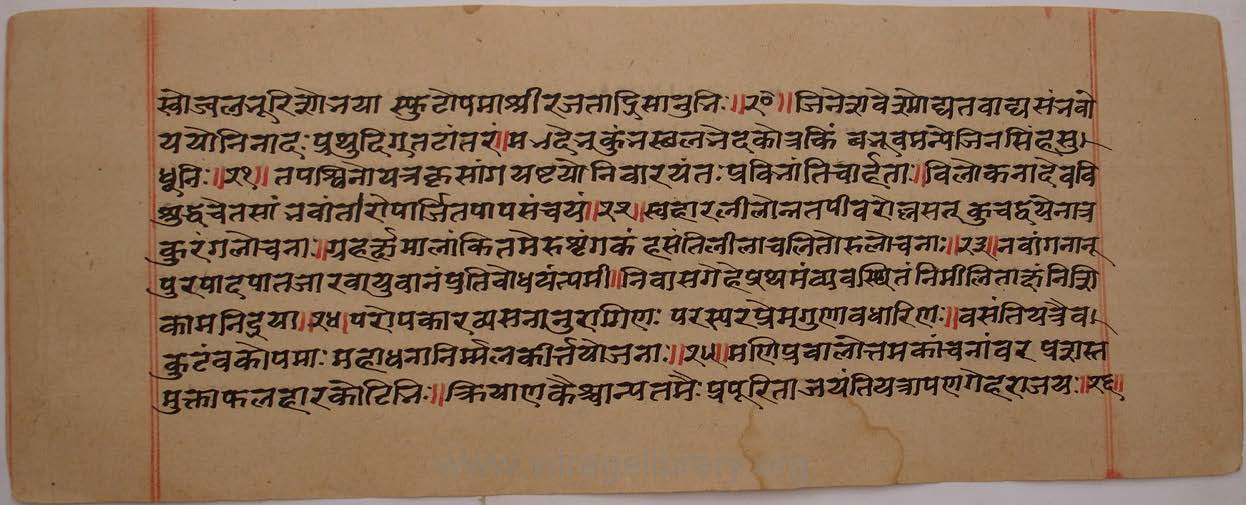 स्वोज्वलनूरिशोभया स्फुटोपमाश्रीरजतादिसानुभिः ॥२०॥ जिनेशवेश्मोद्यतवाद्यसंभवो
ययोनिनादः पृथुदिगततटांतरां॥ कुंभस्खलनेदकोत्रकिं बभूवमन्येजिनसिंहसु
ध्वनिः॥२१॥ तपश्विनोयत्रकृसांगयष्टयोनिवारयंतः पविनांतिचार्हता॥ विलोकनादेववि
शुद्धचेतसां भवांतारोपार्जितपापसंचयं॥२२॥ स्वहारलीलोन्नतपीवरोल्लसत् कुचद्वयेनात्र
कुरंगलोचना॥ ग्रहर्क्षमालांकितमेरुशृंगकं हसंतिलीलाचलितोरुलोचनाः॥२३॥ नवांगनानू
पुरपादपातजारवायुवानंप्रतिबोधयंत्यमी॥ निवासगेहेप्रथमंव्यवस्थितं निमीलिताक्षंनिशि
कामनिद्रया॥२४॥ परोपकारव्यसनानुरागिणः परस्परप्रेमगुणावधारिणः॥ वसंतियत्रैव
कुटंबकोपमाः महाधनानिर्म्मलकीर्त्तयोजनाः॥२५॥ मणिप्रवालोत्तमकांचनांवर प्रशस्त
मुक्ताफलहारकोटिभिः॥ क्रियाणकैश्चान्यतमैः प्रपूरिता जयंतियत्रापणगेहराजयः॥२६॥